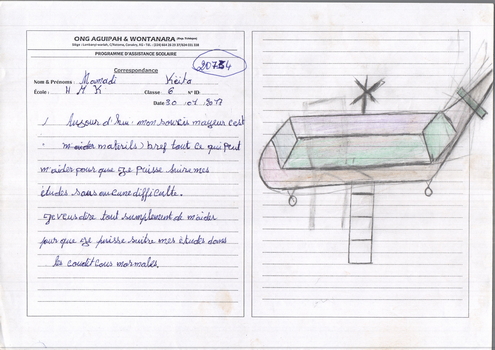 ONG AGUIPAH & WONTANARA
PROGRAMME D'ASSISTANCE SCOLAIRE
20734
Correspondance
Nom & Prénoms Mamadi Keita
École: H M K Classe 6 N° ID:
Date 30 01 2017
Aujour d'hui mon soucis majeur c'est
m'aider materils) bref tout ce qui peut
m'aider pour que ze puisse suire mes
études sans aucune difficulte.
zeveus dire tout simplement de m'aider
pour que ze puisse suitre mes études dans
les conditions normales.